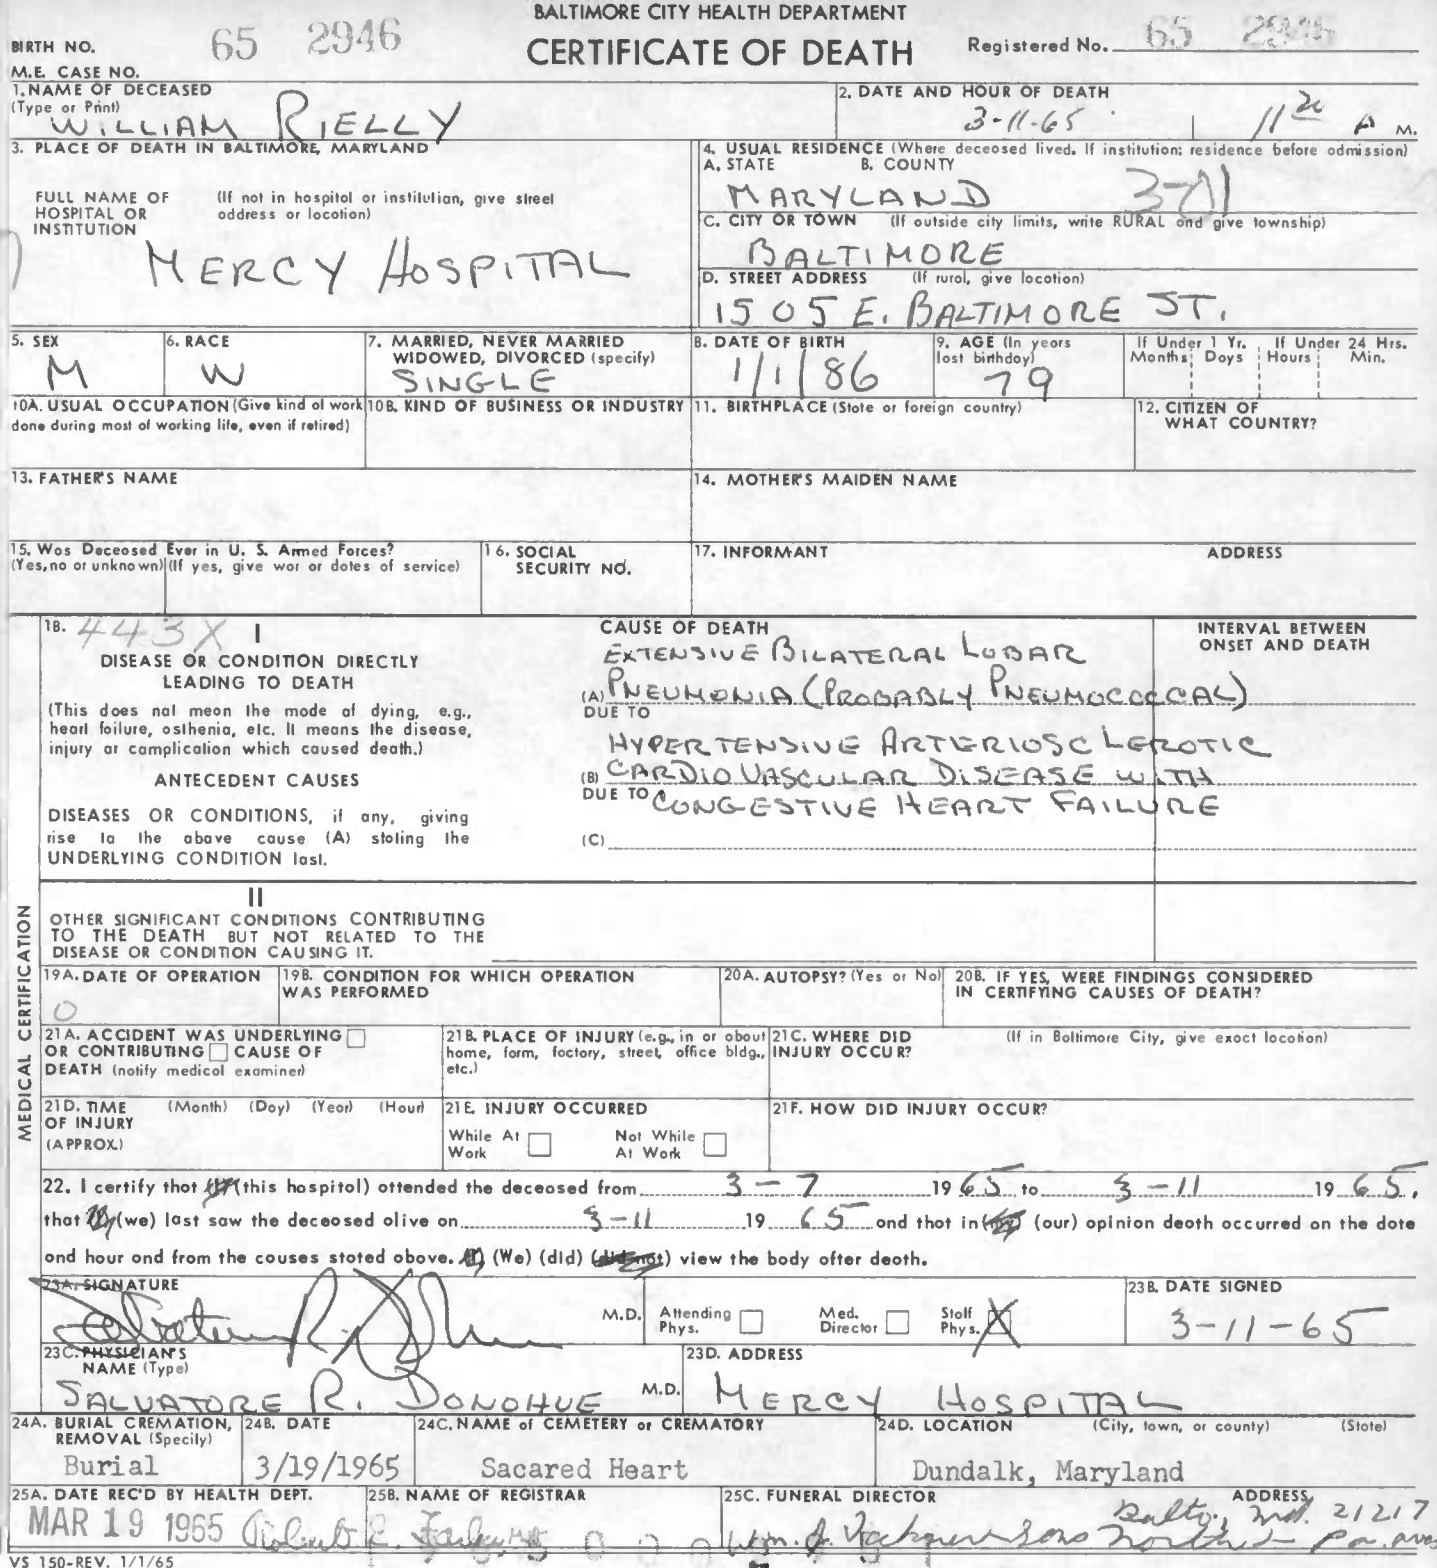 BALTIMORE CITY HEALTH DEPARTMENT
CERTIFICATE OF DEATH
BIRTH NO. 65 2946
Registered No. 65 2946
M.E. CASE NO.
1. NAME OF DECEASED
(Type or Print)
WILLIAM RIELLY
2. DATE AND HOUR OF DEATH
3-11-65 11 A M.
3. PLACE OF DEATH IN BALTIMORE, MARYLAND
FULL NAME OF HOSPITAL OR INSTITUTION
(If not in hospital or institution, give street address or location)
MERCY HOSPITAL
4. USUAL RESIDENCE (Where deceased lived. If institution: residence before admission)
A. STATE B. COUNTY
MARYLAND
C. CITY OR TOWN (If outside city limits, write RURAL and give township)
BALTIMORE
D. STREET ADDRESS (If rural, give location)
1505 E. BALTIMORE ST.
5. SEX
M
6. RACE
W
7. MARRIED, NEVER MARRIED
WIDOWED, DIVORCED (specify)
SINGLE
8. DATE OF BIRTH
1/1/86
9. AGE (In years
last birthday)
79
If Under 1 Yr.
Months Days
If Under 24 Hrs.
Hours Min.
10A. USUAL OCCUPATION (Give kind of work
done during most of working life, even if retired)
10B. KIND OF BUSINESS OR INDUSTRY
11. BIRTHPLACE (State or foreign country)
12. CITIZEN OF
WHAT COUNTRY?
13. FATHER'S NAME
14. MOTHER'S MAIDEN NAME
15. Was Deceased Ever in U. S. Armed Forces?
(Yes, no or unknown) (If yes, give war or dates of service)
16. SOCIAL
SECURITY NO.
17. INFORMANT ADDRESS
18. 443X I
DISEASE OR CONDITION DIRECTLY
LEADING TO DEATH
(This does not mean the mode of dying, e.g.,
heart failure, asthenia, etc. It means the disease,
injury or complication which caused death.)
ANTECEDENT CAUSES
DISEASES OR CONDITIONS, if any, giving
rise to the above cause (A) stating the
UNDERLYING CONDITION last.
CAUSE OF DEATH
EXTENSIVE BILATERAL LOBAR
(A) PNEUMONIA (PROBABLY PNEUMOCOCCAL)
DUE TO
HYPERTENSIVE ARTERIOSCLEROTIC
(B) CARDIOVASCULAR DISEASE WITH
DUE TO CONGESTIVE HEART FAILURE
(C)
INTERVAL BETWEEN
ONSET AND DEATH
II
OTHER SIGNIFICANT CONDITIONS CONTRIBUTING
TO THE DEATH BUT NOT RELATED TO THE
DISEASE OR CONDITION CAUSING IT.
MEDICAL CERTIFICATION
19A. DATE OF OPERATION
0
19B. CONDITION FOR WHICH OPERATION
WAS PERFORMED
20A. AUTOPSY? (Yes or No)
20B. IF YES, WERE FINDINGS CONSIDERED
IN CERTIFYING CAUSES OF DEATH?
21A. ACCIDENT WAS UNDERLYING
OR CONTRIBUTING CAUSE OF
DEATH (notify medical examiner)
21B. PLACE OF INJURY (e.g., in or about
home, farm, factory, street, office bldg.,
etc.)
21C. WHERE DID
INJURY OCCUR?
(If in Baltimore City, give exact location)
21D. TIME (Month) (Day) (Year) (Hour)
OF INJURY
(APPROX.)
21E. INJURY OCCURRED
While At
Work
Not While
At Work
21F. HOW DID INJURY OCCUR?
22. I certify that (this hospital) attended the deceased from 3-7 1965 to 3-11 1965.
that (we) last saw the deceased alive on 3-11 1965 and that in (our) opinion death occurred on the date
and hour and from the causes stated above. (We) (did) (did not) view the body after death.
23A. SIGNATURE
Salvatore R. Donohue M.D.
Attending
Phys.
Med.
Director
Staff
Phys. X
23B. DATE SIGNED
3-11-65
23C. PHYSICIAN'S
NAME (Type)
SALVATORE R. DONOHUE M.D.
23D. ADDRESS
MERCY HOSPITAL
24A. BURIAL CREMATION,
REMOVAL (Specify)
Burial
24B. DATE
3/19/1965
24C. NAME of CEMETERY or CREMATORY
Sacared Heart
24D. LOCATION (City, town, or county) (State)
Dundalk, Maryland
25A. DATE REC'D BY HEALTH DEPT.
MAR 19 1965
25B. NAME OF REGISTRAR
Robert E. Farber
25C. FUNERAL DIRECTOR ADDRESS
Balto, Md. 21217
Wm. J. Tickner & Sons North & Pa. ave
VS 150-REV. 1/1/65